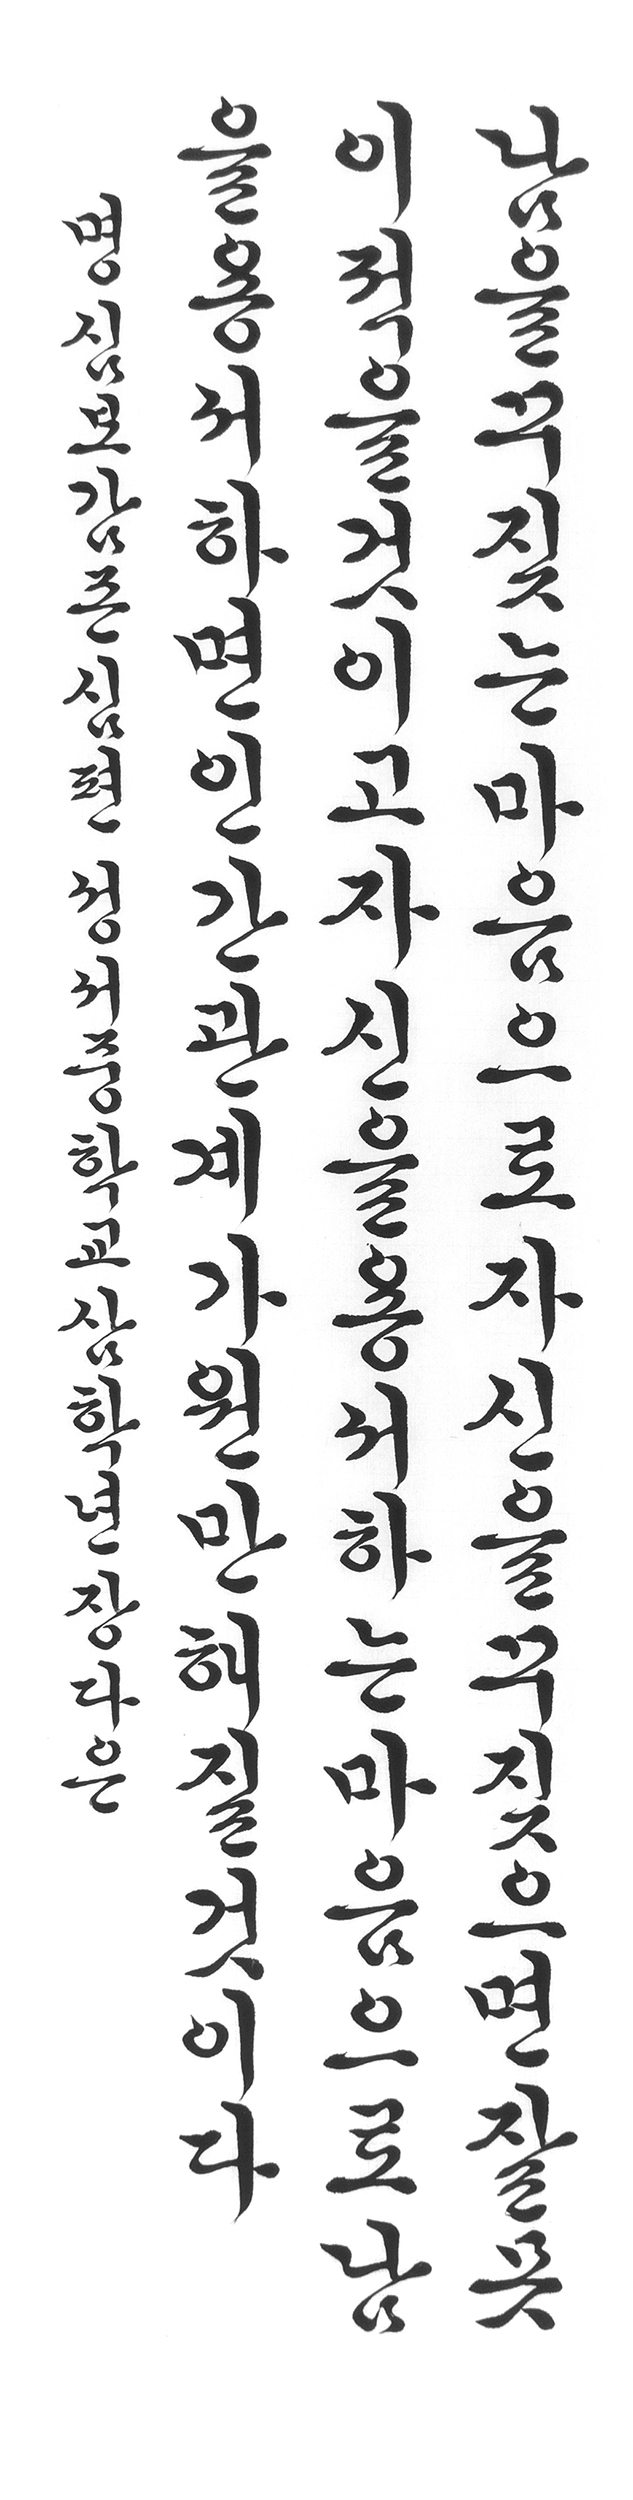 남을꾸짖는마음으로자신을꾸짖으면잘못
이적을것이고자신을용서하는마음으로남
을용서하면인간관계가원만해질것이다
명심보감존심편 정서중학교삼학년장다은